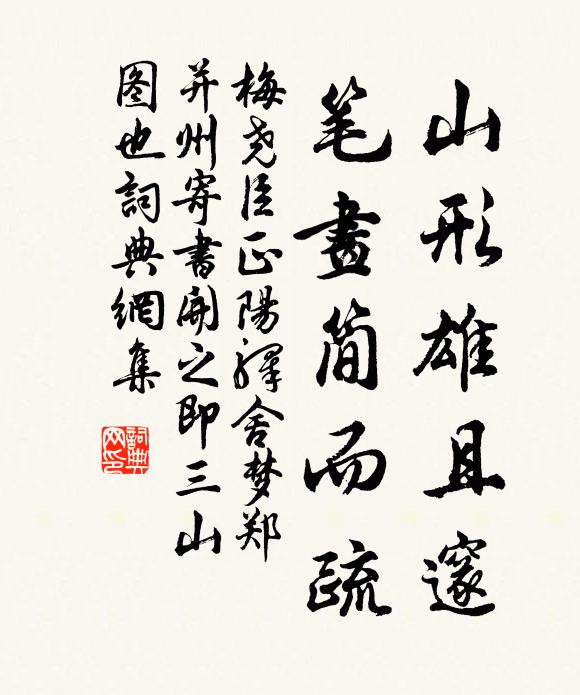 山形雄且邃
笔畫简而疏
梅尧臣正陽驛舍梦郑
并州寄書開之即三山
图也詞典網集
詞典
网印